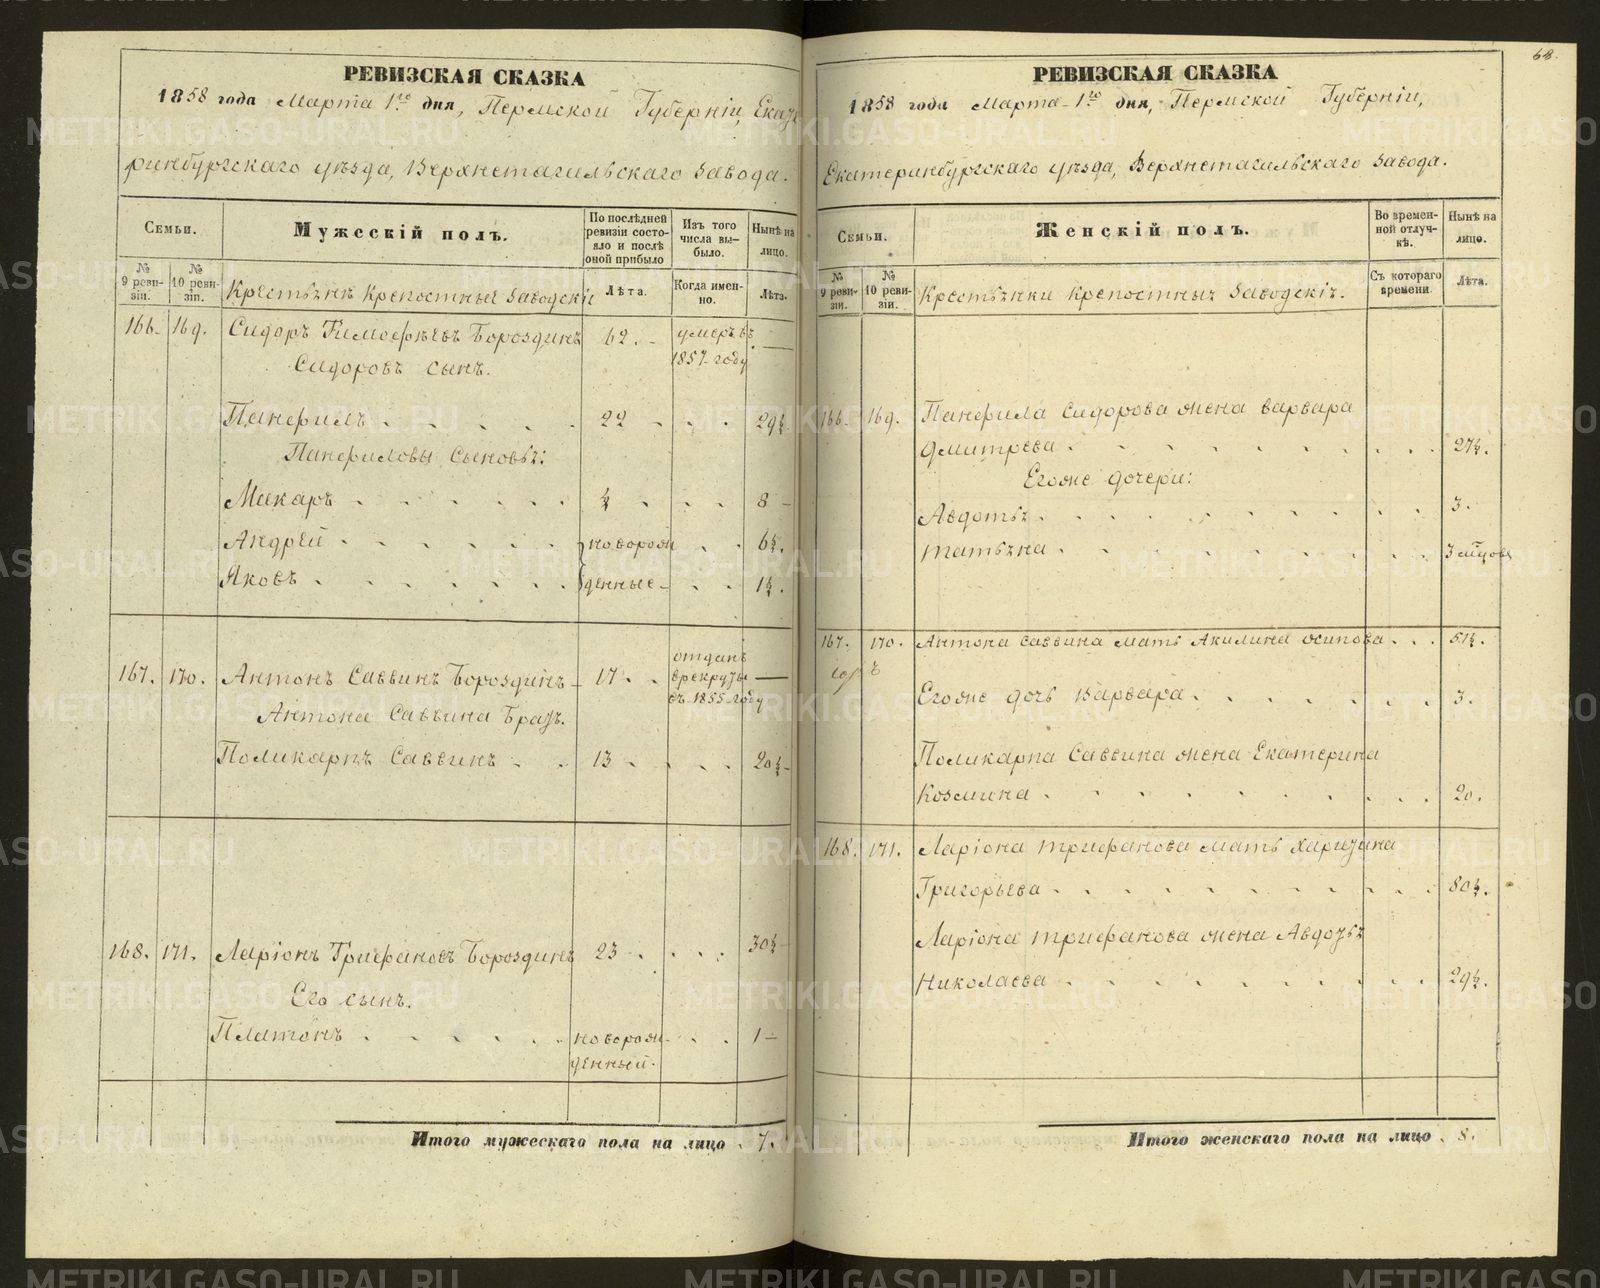 68.
РЕВИЗСКАЯ СКАЗКА
1858 года Марта 1го дня, Пермской Губерніи, Екате
ринбургскаго уѣзда, Верхнетагильскаго завода.
Семьи.
Мужескій полъ.
По послѣдней ревизіи состо- яло и послѣ оной прибыло
Изъ того числа вы- было.
Нынѣ на лицо.
№ 9 реви- зіи.
№ 10 реви- зіи.
Крестьяне крепостные заводскіе
Лѣта.
Когда имен- но.
Лѣта.
166. 169. Сидоръ Тимофѣевъ Бороздинъ 62. умеръ въ —
Сидоровъ сынъ. 1857 году
Панфилъ 22 29½
Панфиловы сыновья:
Макаръ ½ 8
Андрей новорож 6½.
Яковъ денные 1½.
167. 170. Антонъ Саввинъ Бороздинъ 17. отданъ в рекруты въ 1855 году —
Антона Саввина братъ.
Поликарпъ Саввинъ 13 20½
168. 171. Ларіонъ Трифановъ Бороздинъ 23 30½
Его сынъ.
Платонъ новорож 1
денный.
Итого мужескаго пола на лицо . 7.
РЕВИЗСКАЯ СКАЗКА
1858 года Марта 1го дня, Пермской Губерніи,
Екатеринбургскаго уѣзда, Верхнетагильскаго завода.
Семьи.
Женскій полъ.
Во времен- ной отлуч- кѣ.
Нынѣ на лицо.
№ 9 реви- зіи.
№ 10 реви- зіи.
Крестьянки крепостныя заводскія.
Съ котораго времени.
Лѣта.
166. 169. Панфила Сидорова жена Варвара
Дмитрева 27½.
Егоже дочери:
Авдотья 3.
Татьяна 3 мѣцовъ
167. 170. Антона Саввина мать Акилина Осипова 51½.
Егоже дочь Варвара 3.
Поликарпа Саввина жена Екатерина
Козмина 20.
168. 171. Ларіона Трифанова мать Харитина
Григорьева 80½.
Ларіона Трифанова жена Авдотья
Николаева 29½.
Итого женскаго пола на лицо . 8.
METRIKI.GASO-URAL.RU